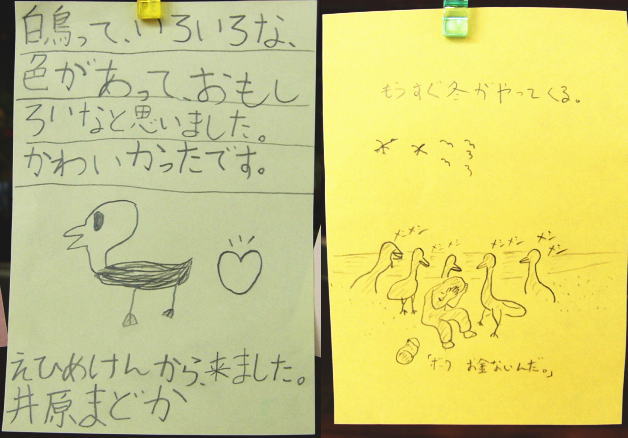 白鳥って、いろいろな、
色があって、おもし
ろいなと思いました。
かわいかったです。
えひめけんから、来ました。
井原まどか
もうすぐ冬がやってくる。
メンメン
メンメン
メンメン
メンメン
「ボーク お金ないんだ。」